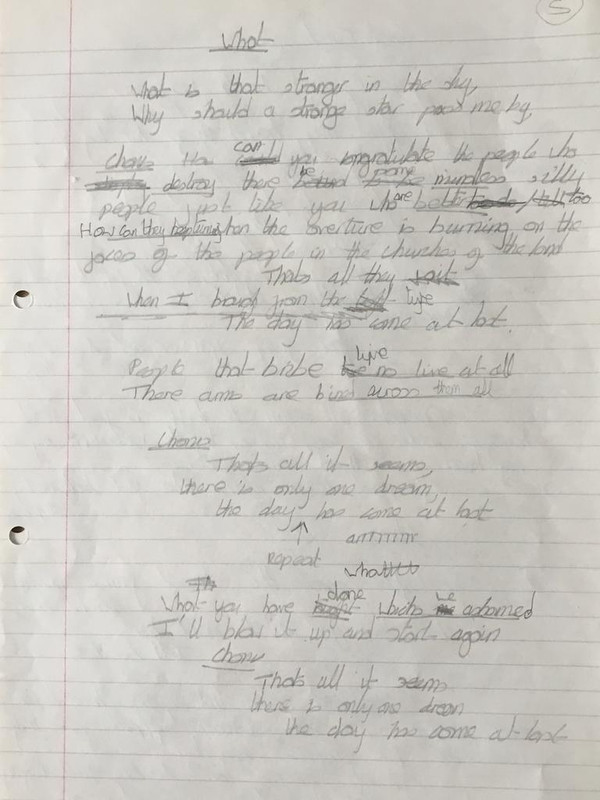 5
What
What is that stranger in the sky,
Why should a strange star pass me by,
Chorus How can you congratulate the people who
destroy there be many mindless silly
people just like you who are better too
How can they happening when the overture is burning on the
faces of the people in the churches of the land
Thats all they
When I from the life
The day has come at last.
People that bribe live no live at all
There arms are bind across them all
Chorus
Thats all it seems,
there is only one dream,
the day has come at last
Repeat arrrrrrr
What you have done which we ashamed
I'll blow it up and start again
Chorus
Thats all it seems
there is only one dream
the day has come at last